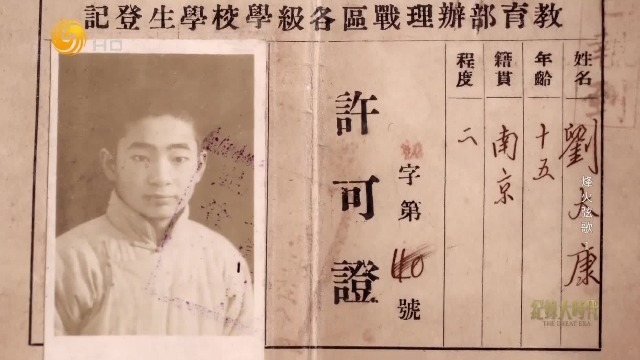 教育部辦理戰區各級學校學生登記
姓名 劉大康
年齡 十五
籍貫 南京
程度 二
許可證
初字第40號
烽火弦歌
紀錄大時代
THE GREAT ERA
HD